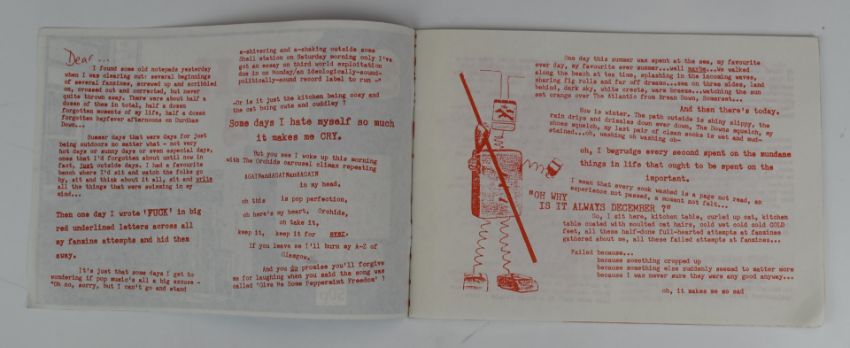 Dear...
I found some old notepads yesterday
when I was clearing out: several beginnings
of several fanzines, screwed up and scribbled
on, crossed out and corrected, but never
quite thrown away. There were about half a
dozen of them in total, half a dozen
forgotten moments of my life, half a dozen
forgotten hayfever afternoons on Durdham
Down...
Summer days that were days for just
being outdoors no matter what - not very
hot days or sunny days or even special days,
ones that I'd forgotten about until now in
fact, just outside days. I had a favourite
bench where I'd sit and watch the folks go
by, sit and think about it all, sit and write
all the things that were swimming in my
mind...
Then one day I wrote 'FUCK' in big
red underlined letters across all
my fanzine attempts and hid them
away.
It's just that some days I get to
wondering if pop music's all a big excuse -
"Oh no, sorry, but I can't go and stand
a-shivering and a-shaking outside some
Shell station on Saturday morning only I've
got an essay on third world exploitation
due in on Monday/an ideologically-sound-
politically-sound record label to run -"
-Or is it just the kitchen being cosy and
the cat being cute and cuddley ?
Some days I hate myself so much
it makes me CRY.
But you see I woke up this morning
with The Orchids carousel climax repeating
AGAINandAGAINandAGAIN
in my head,
oh this is pop perfection,
oh here's my heart, Orchids,
oh take it,
keep it, keep it for ever.
If you leave me I'll burn my A-Z of
Glasgow.
And you do promise you'll forgive
me for laughing when you said the song was
called 'Give Me Some Peppermint Freedom' ?
One day this summer was spent at the sea, my favourite
ever day, my favourite ever summer...well maybe...We walked
along the beach at tea time, splashing in the incoming waves,
sharing fig rolls and far off dreams...sea on three sides, land
behind, dark sky, white crests, warm breeze...watching the sun
set orange over The Atlantic from Brean Down, Somerset...
And then there's today.
Now is winter. The path outside is shiny slippy, the
rain drips and drizzles down ever down. The Downs squelch, my
shoes squelch, my last pair of clean socks is wet and mud-
stained...oh, washing oh washing oh-
oh, I begrudge every second spent on the mundane
things in life that ought to be spent on the
important.
I mean that every sock washed is a page not read, an
experience not passed, a moment not felt...
"OH WHY
IS IT ALWAYS DECEMBER ?"
So, I sit here, kitchen table, curled up cat, kitchen
table coated with moulted cat hairs, cold wet cold cold COLD
feet, all these half-done full-hearted attempts at fanzines
gathered about me, all these failed attempts at fanzines...
Failed because...
because something cropped up
because something else suddenly seemed to matter more
because I was never sure they were any good anyway...
oh, it makes me so sad